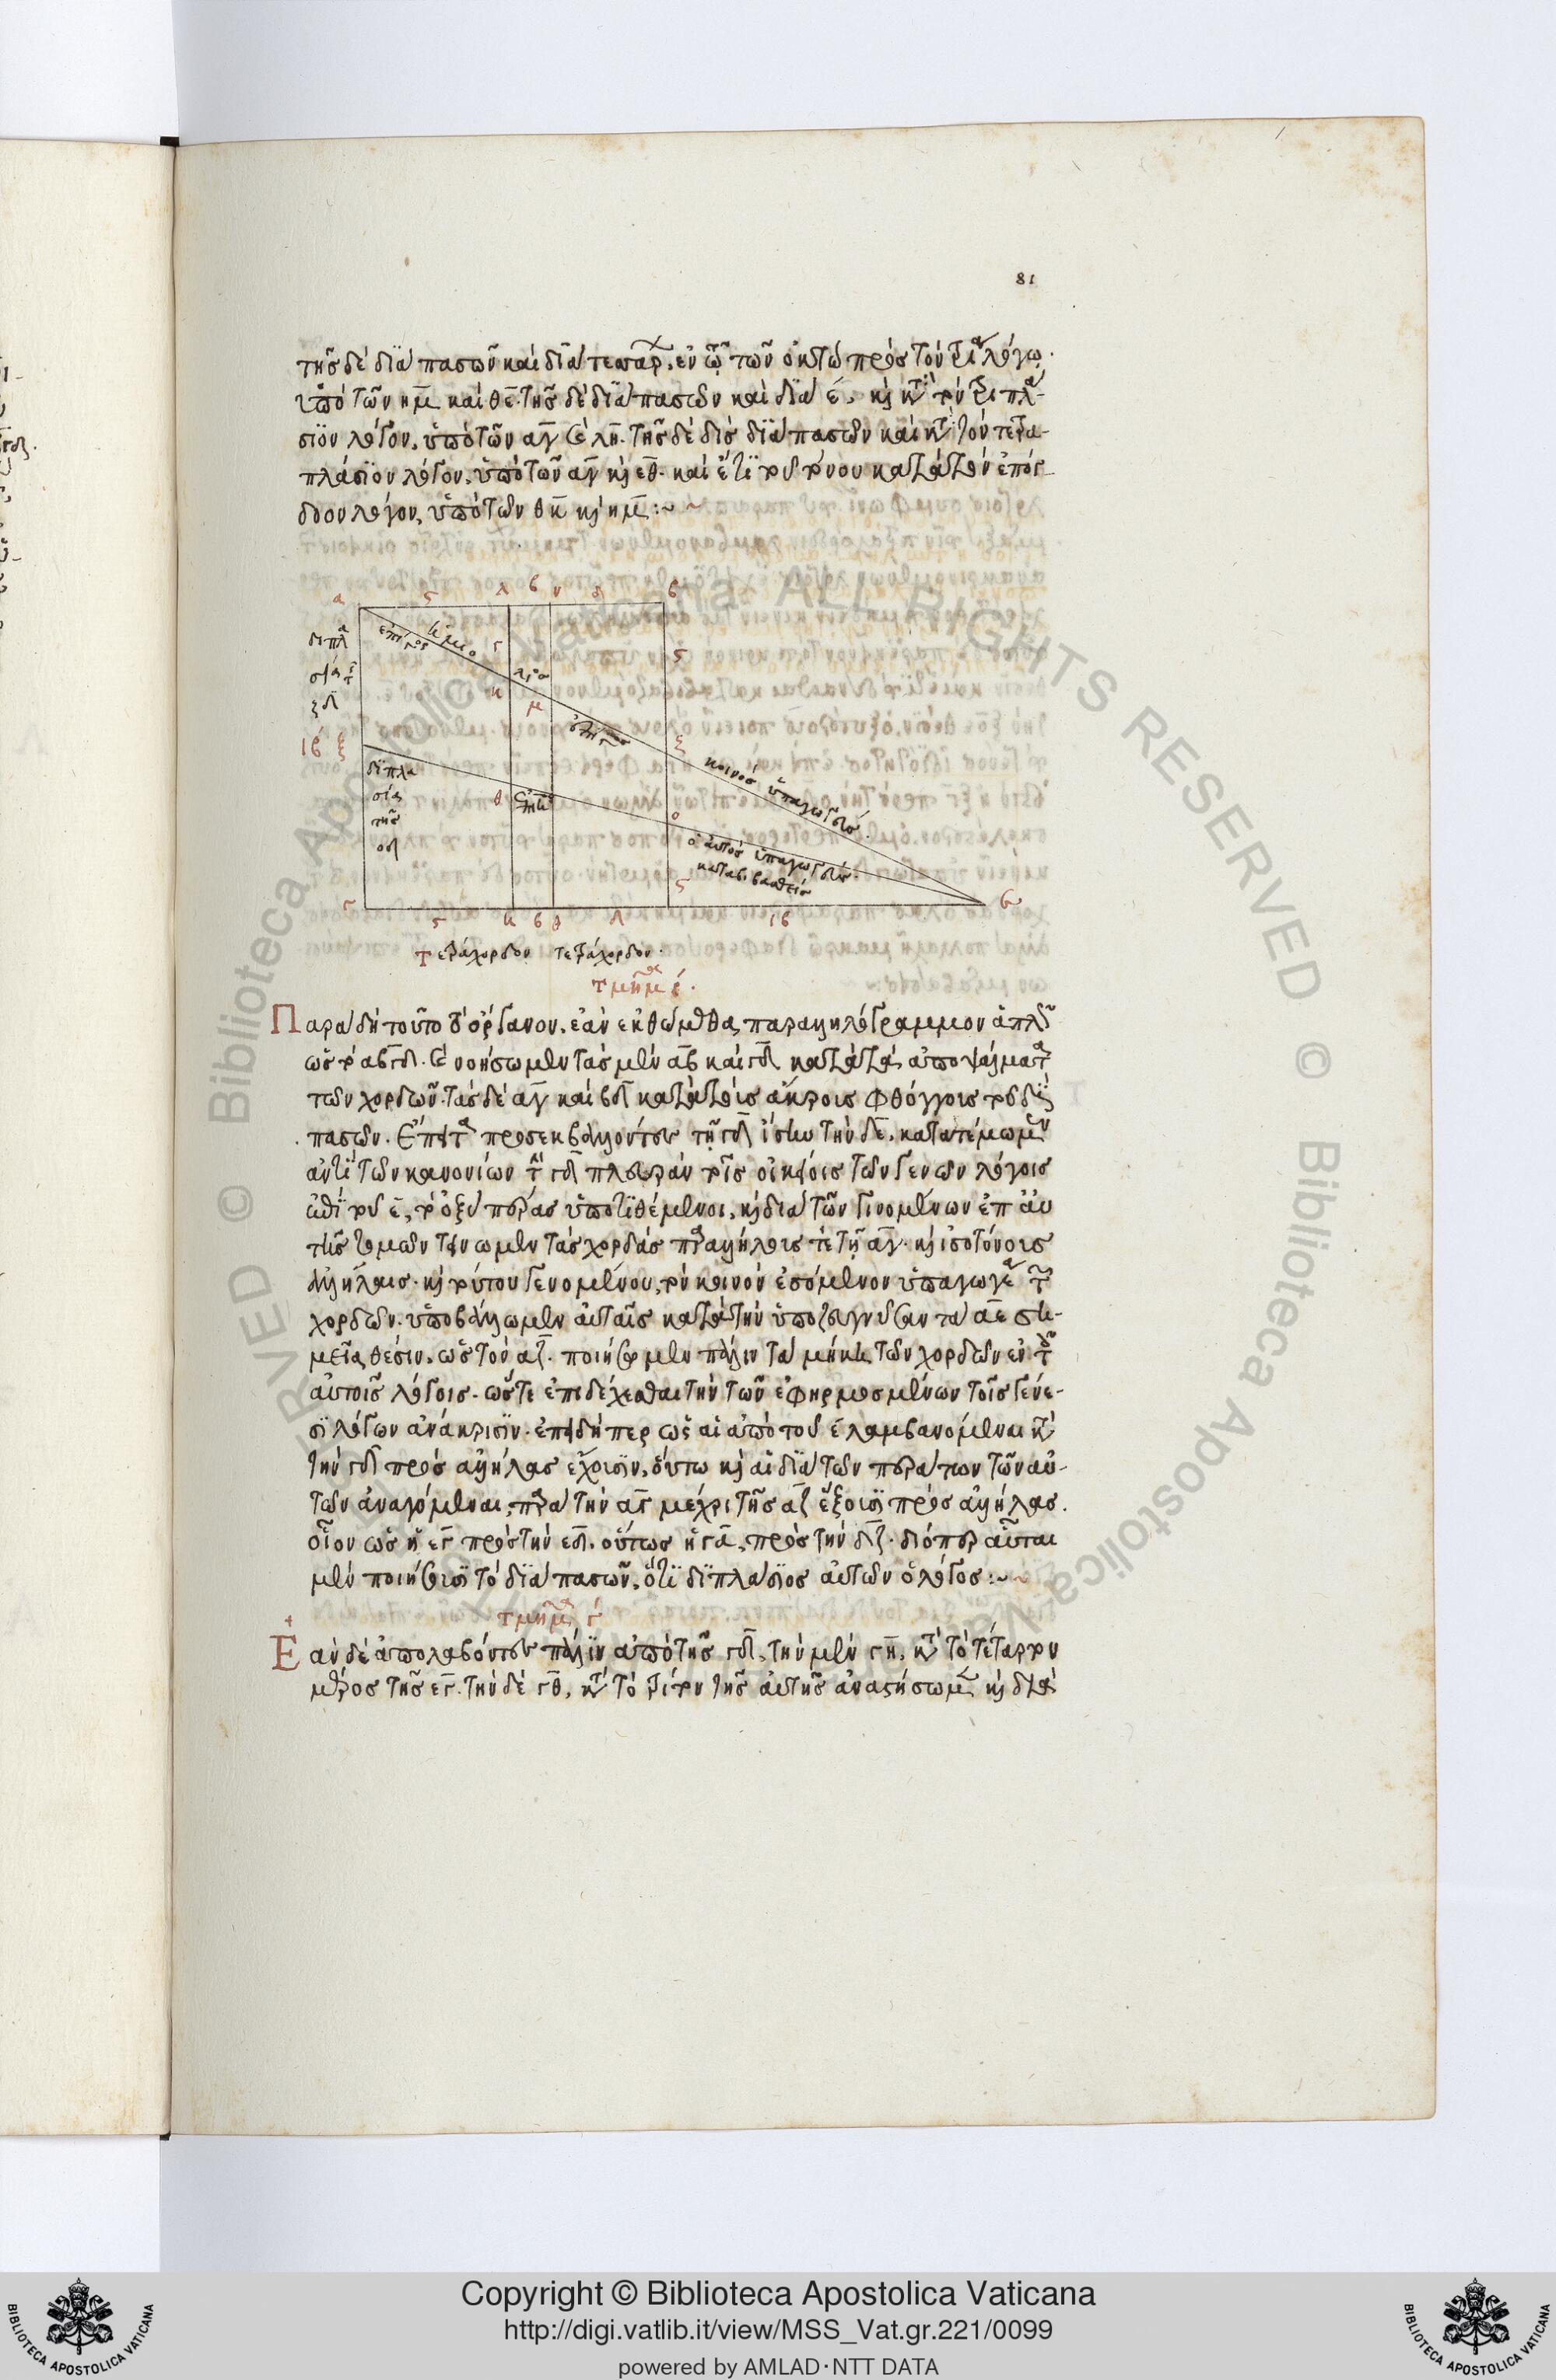 81
τῆς δὲ διὰ πασῶν καὶ διὰ τεσσάρ. ἐν ᾧ τῶν ὀκτὼ πρὸς τὸν τρία λόγῳ.
ὑπὸ τῶν ημ καὶ θε. τῆς δὲ διὰ πασῶν καὶ διὰ ε. κὶ κτ τὸν τριπλα-
σιον λόγον, ὑπὸ τῶν αγ κὶ λη. τῆς δὲ δὶς διὰ πασῶν καὶ κτ τὸν τετρα-
πλάσιον λόγον, ὑπὸ τῶν αγ κὶ εθ. καὶ ἔτι τοῦ τόνου κατὰ τὸν ἐπόγ-
δοον λόγον, ὑπὸ τῶν θκ κὶ ημ :~ ~
α ϛ λ β ν δ β
διπλ
σία τ
ξδ
ιβ ξ
κ
μ
ϛ
ξ
κοινὸς ὑπαγωγεύς.
διπλα
σία
τῆς
οδ
θ
ο
ὁ αὐτὸς ὑπαγωγεύς
καταβιβασθείς
ϛ
γ ϛ κ β δ ιβ
Τετράχορδον τετράχορδον.
τμῆμα ε.
Παρὰ δὴ τοῦτο τὸ ὄργανον, ἐὰν ἐκθώμεθα παραλληλόγραμμον ἁπλῶ
ὡς τὸ αβγδ. κὶ νοήσωμεν τὰς μὲν αβ καὶ γδ κατὰ τὰ ἀποψάλματα
τῶν χορδῶν. τὰς δὲ αγ καὶ βδ κατὰ τοῖς ἄκροις φθόγγοις τοῦ διὰ
πασῶν. ἔπειτα προσεκβάλλοντες τῇ γδ ἴσην τὴν δε, κατατέμωμεν
ἀντὶ τῶν κανονίων τ γδ πλευρὰν τοῖς οἰκείοις τῶν γενῶν λόγοις
ἐπὶ τοῦ ε, τὸ ὀξὺ πέρας ὑποτιθέμενοι, κὶ διὰ τῶν γινομένων ἐπ αὐ
τῆς τομῶν τείνωμεν τὰς χορδὰς παραλλήλους τε τῇ αγ. κὶ ἰσοτόνους
ἀλλήλαις. κὶ τούτου γενομένου, τὸν κοινὸν ἐσόμενον ὑπαγωγέα τ
χορδῶν. ὑποβάλλωμεν αὐταῖς κατὰ τὴν ὑποζευγνῦσαν τὰ αε ση-
μεῖα θέσιν, ὡς τὸν αζ. ποιήσομεν πάλιν τὰ μήκη τῶν χορδῶν ἐν τ
αὐτοῖς λόγοις. ὥστε ἐπιδέχεσθαι τὴν τῶν ἐφηρμοσμένων τοῖς γένε-
σι λόγων ἀνάκρισιν. ἐπειδήπερ ὡς αἱ ἀπὸ τοῦ ε λαμβανόμεναι κτ
τὴν γδ πρὸς ἀλλήλας ἔχουσιν, οὕτω κὶ αἱ διὰ τῶν περάτων τῶν αὐ-
τῶν ἀναγόμεναι, παρὰ τὴν αγ μέχρι τῆς αζ ἕξουσι πρὸς ἀλλήλας.
οἷον ὡς ἡ εγ πρὸς τὴν εδ, οὕτως ἡ γα, πρὸς τὴν δζ. διόπερ αὗται
μὲν ποιήσουσι τὸ διὰ πασῶν, ὅτι διπλάσιος αὐτῶν ὁ λόγος :~ ~
τμῆμα ϛ
Ἐὰν δὲ ἀπολαβόντες πάλιν ἀπὸ τῆς γδ, τὴν μὲν γη, κτ τὸ τέταρτον
μέρος τῆς εγ. τὴν δὲ γθ, κτ τὸ τρίτον τῆς αὐτῆς ἀναστήσωμεν κὶ διὰ
Copyright © Biblioteca Apostolica Vaticana
http://digi.vatlib.it/view/MSS_Vat.gr.221/0099
powered by AMLAD·NTT DATA